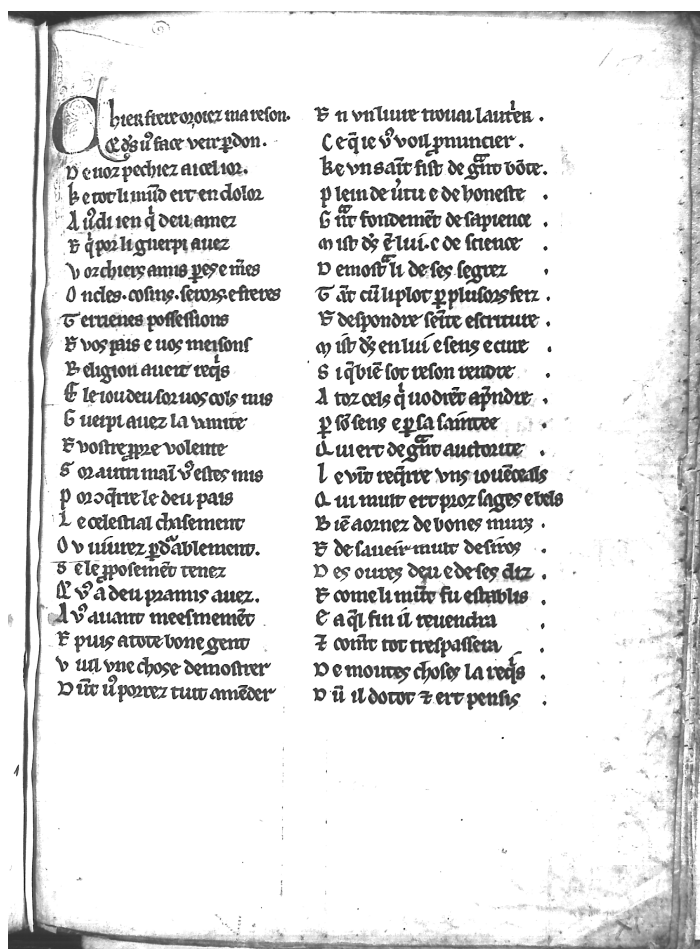 Chier frere oroiez ma reson.
Q̃ d's u' face veir ꝑdon.
D e uoz pechiez a icel ior.
k e tot li mũd ert en dolor
A u' di ien q' deu amez
E q' por li guerpi auez
V oz chiers amis ꝑes e m̃es
O ncles. cosins. serors. e freres
T errienes possessions
E vos païs e uos meisons
R eligion auetz req's
E le iou deu sor uos cols mis
G uerpi auez la uanite
E vostre ꝓpre volente
S or autrui mai u' estes mis
P or ↄq̃rre le deu païs
L e celestial chasement
O v uiurez ꝑd'ablement.
S e le ꝓposemẽt tenez
Q̃ u' a deu pramis auez.
A u' auant meesmemẽt
E puis a tote bone gent
V uil vne chose demostrer
D ũt u' porrez tuit amẽder
E n vn liure trouai lautrer .
C e q̃ ie u' voil ꝓnuncier .
ke vn saĩt fist de g̃nt bõte.
P lein de u'tu e de honeste .
G ñt fondemẽt de sapience .
M ist d's ẽ lui. e de science .
D emost̃ li de ses segrez .
T ãt cũ li plot ꝑ plusors feiz .
E despondre seĩte escriture .
M ist d's en lui e sens e cure .
S i q̃ biẽ sot reson rendre .
A toz cels q' uodrẽt ap̃ndre .
ꝑ sõ sens e ꝑ sa saintee .
Q ui ert de g̃nt auctorite .
L e vĩt req̃rre vns iouẽceals
Q ui mult ert proz sages e bels
B iẽ aornez de bones murs .
E de saueir mult desiros .
D es oures deu e de ses diz .
E come li mũde fu establis .
E a q̃l fin il reuendra .
⁊ cõmt tot trespassera .
D e moutes choses la req's .
D ũ il dotot ⁊ ert pensis .